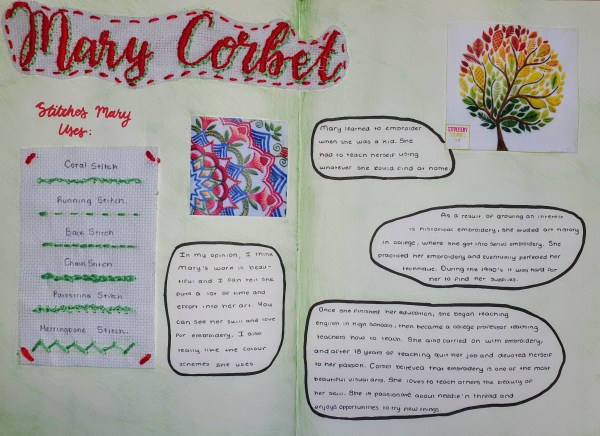 Mary Corbet
Stitches Mary
Uses:
Coral Stitch
Running Stitch
Back Stitch
Chain Stitch
Palestrina Stitch
Herringbone Stitch
In my opinion, I think
Mary's work is beau-
tiful and I can tell she
puts a lot of time and
effort into her art. You
can see her skill and love
for embroidery. I also
really like the colour
schemes she uses.
Mary learned to embroider
when she was a kid. She
had to teach herself using
whatever she could find at home.
As a result of growing an interest
in historical embroidery, she studied art history
in college, where she got into serious embroidery. She
practiced her embroidery and eventually perfected her
technique. During the 1990's it was hard for
her to find her supplies.
Once she finished her education, she began teaching
english in high schools, then became a college professor teaching
teachers how to teach. She also carried on with embroidery,
and after 18 years of teaching quit her job and devoted herself
to her passion. Corbet believed that embroidery is one of the most
beautiful visual arts. She loves to teach others the beauty of
her skill. She is passionate about needle 'n thread and
enjoys opportunities to try new things.